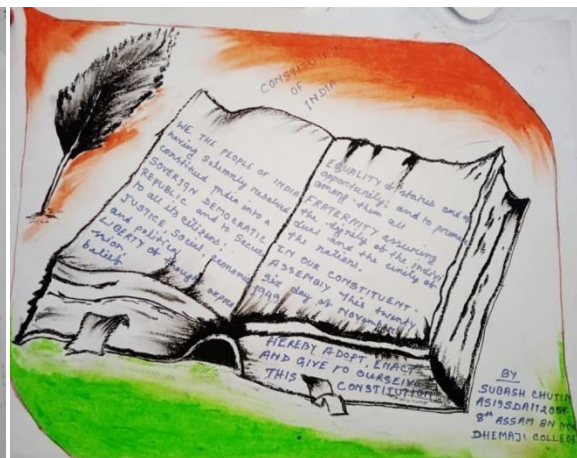 CONSTITUTION
OF
INDIA
WE THE PEOPLE OF INDIA
having solemnly resolved
constitued India into a
SOVERIGN DEMOCRATIC
REPUBLIC and to secure
to all its citizens:
JUSTICE, Social, economic
and political
LIBERTY of thought expre
ssion
belief
EQUALITY of status and of
opportunity; and to promote
among them all
FRATERNITY assuring
the dignity of the indivi
dual and the unity of
the nations.
IN OUR CONSTITUENT.
ASSEMBLY this twenty
six day of November
1949
HEREBY ADOPT, ENACT
AND GIVE TO OURSELVE
THIS CONSTITUTION
BY
SUBASH CHUTIA
8th ASSAM BN NCC
DHEMAJI COLLEGE